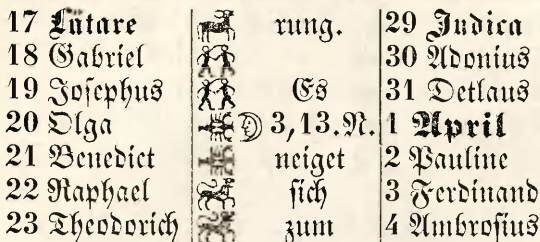 17 Lätare rung. 29 Judica
18 Gabriel 30 Adonius
19 Josephus Es 31 Detlaus
20 Olga 3,13.N. 1 April
21 Benedict neiget 2 Pauline
22 Raphael sich 3 Ferdinand
23 Theodorich zum 4 Ambrosius